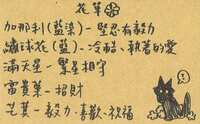 花草
加那利(藍染)-堅忍有毅力
繡球花(藍)-冷酷、執著的愛
滿天星-繁星相守
富貴菜-招財
艽茛-毅力、喜歡、祝福